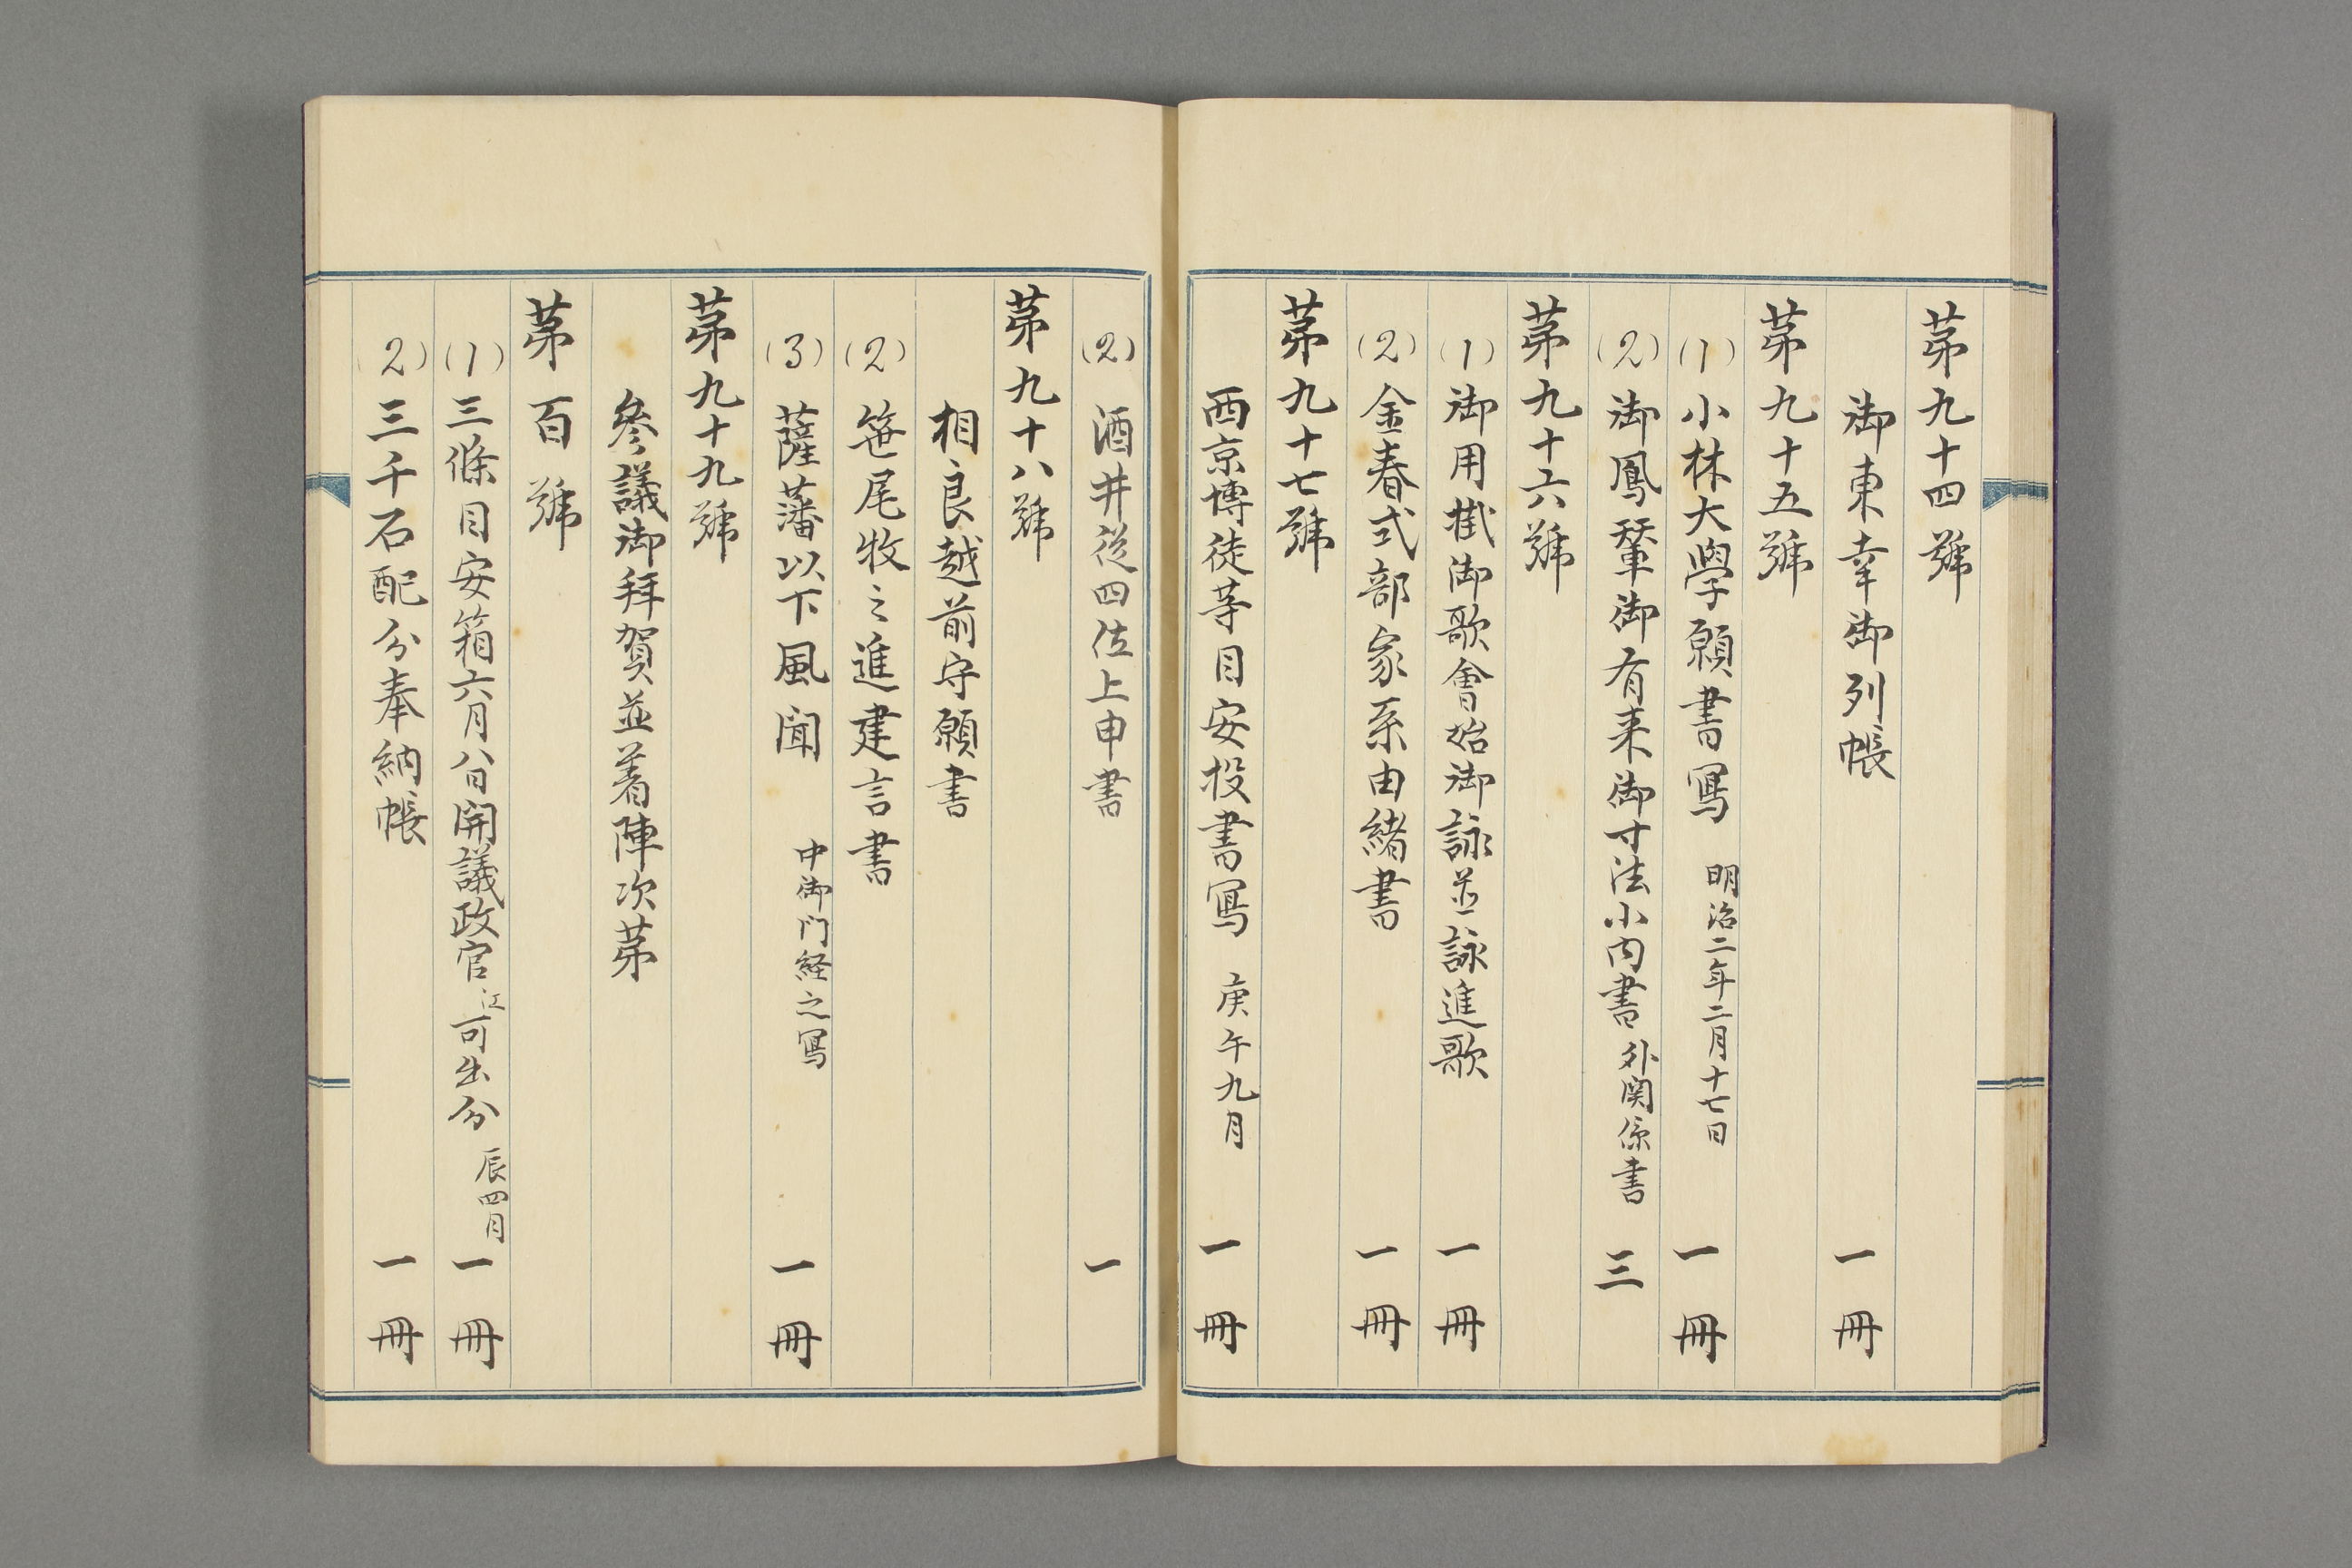 第九十四號
御東幸御列帳 一冊
第九十五號
(1) 小林大學願書寫 明治二年二月十七日 一冊
(2) 御鳳輦御有来御寸法小内書 外関係書 三
第九十六號
(1) 御用掛御歌會始御詠並詠進歌 一冊
(2) 金春式部家系由緒書 一冊
第九十七號
西京博徒等目安投書寫 庚午九月 一冊
(2) 酒井従四位上申書 一
第九十八號
相良越前守願書
(2) 笹尾牧之進建言書
(3) 薩藩以下風聞 中御門経之寫 一冊
第九十九號
參議御拜賀並着陣次第
第百號
(1) 三條目安箱六月八日開議政官江可出分 辰四月 一冊
(2) 三千石配分奉納帳 一冊